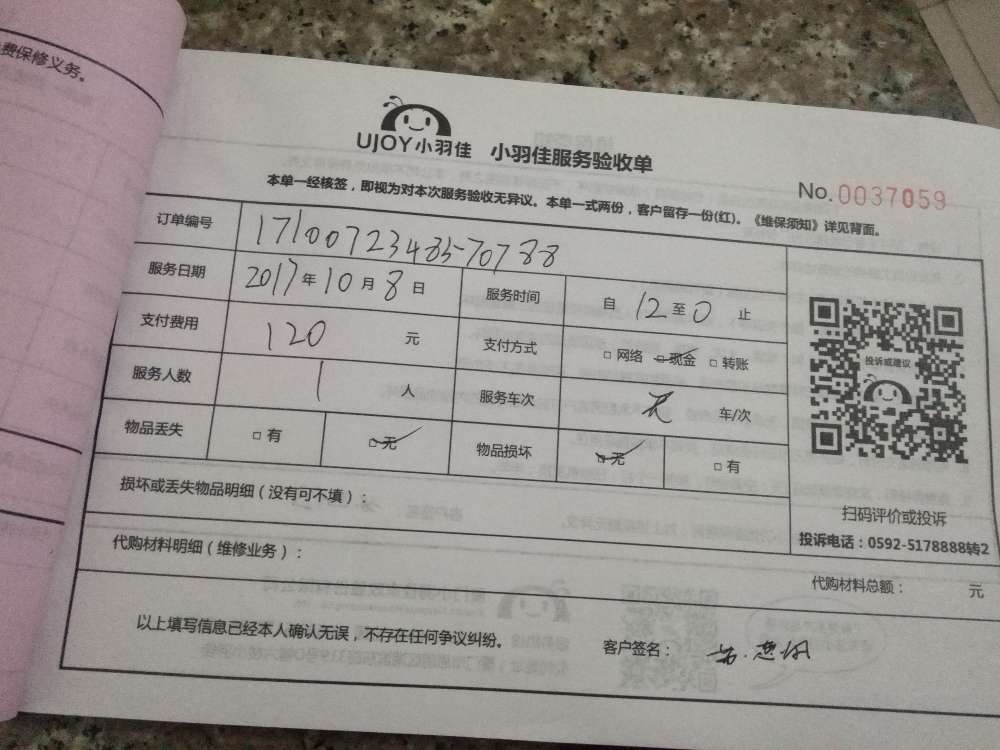 费保修义务。
UJOY小羽佳 小羽佳服务验收单
No.0037059
本单一经核签，即视为对本次服务验收无异议。本单一式两份，客户留存一份(红)。《维保须知》详见背面。
订单编号
服务日期 2017年10月8日 服务时间 自 12 至 0 止
支付费用 120 元 支付方式 □ 网络 □ 现金 □ 转账
服务人数 1 人 服务车次 车/次
物品丢失 □ 有 □ 无 物品损坏 □ 无 □ 有
投诉或建议
扫码评价或投诉
投诉电话：0592-5178888转2
损坏或丢失物品明细（没有可不填）：
代购材料明细（维修业务）：
代购材料总额： 元
以上填写信息已经本人确认无误，不存在任何争议纠纷。
客户签名：